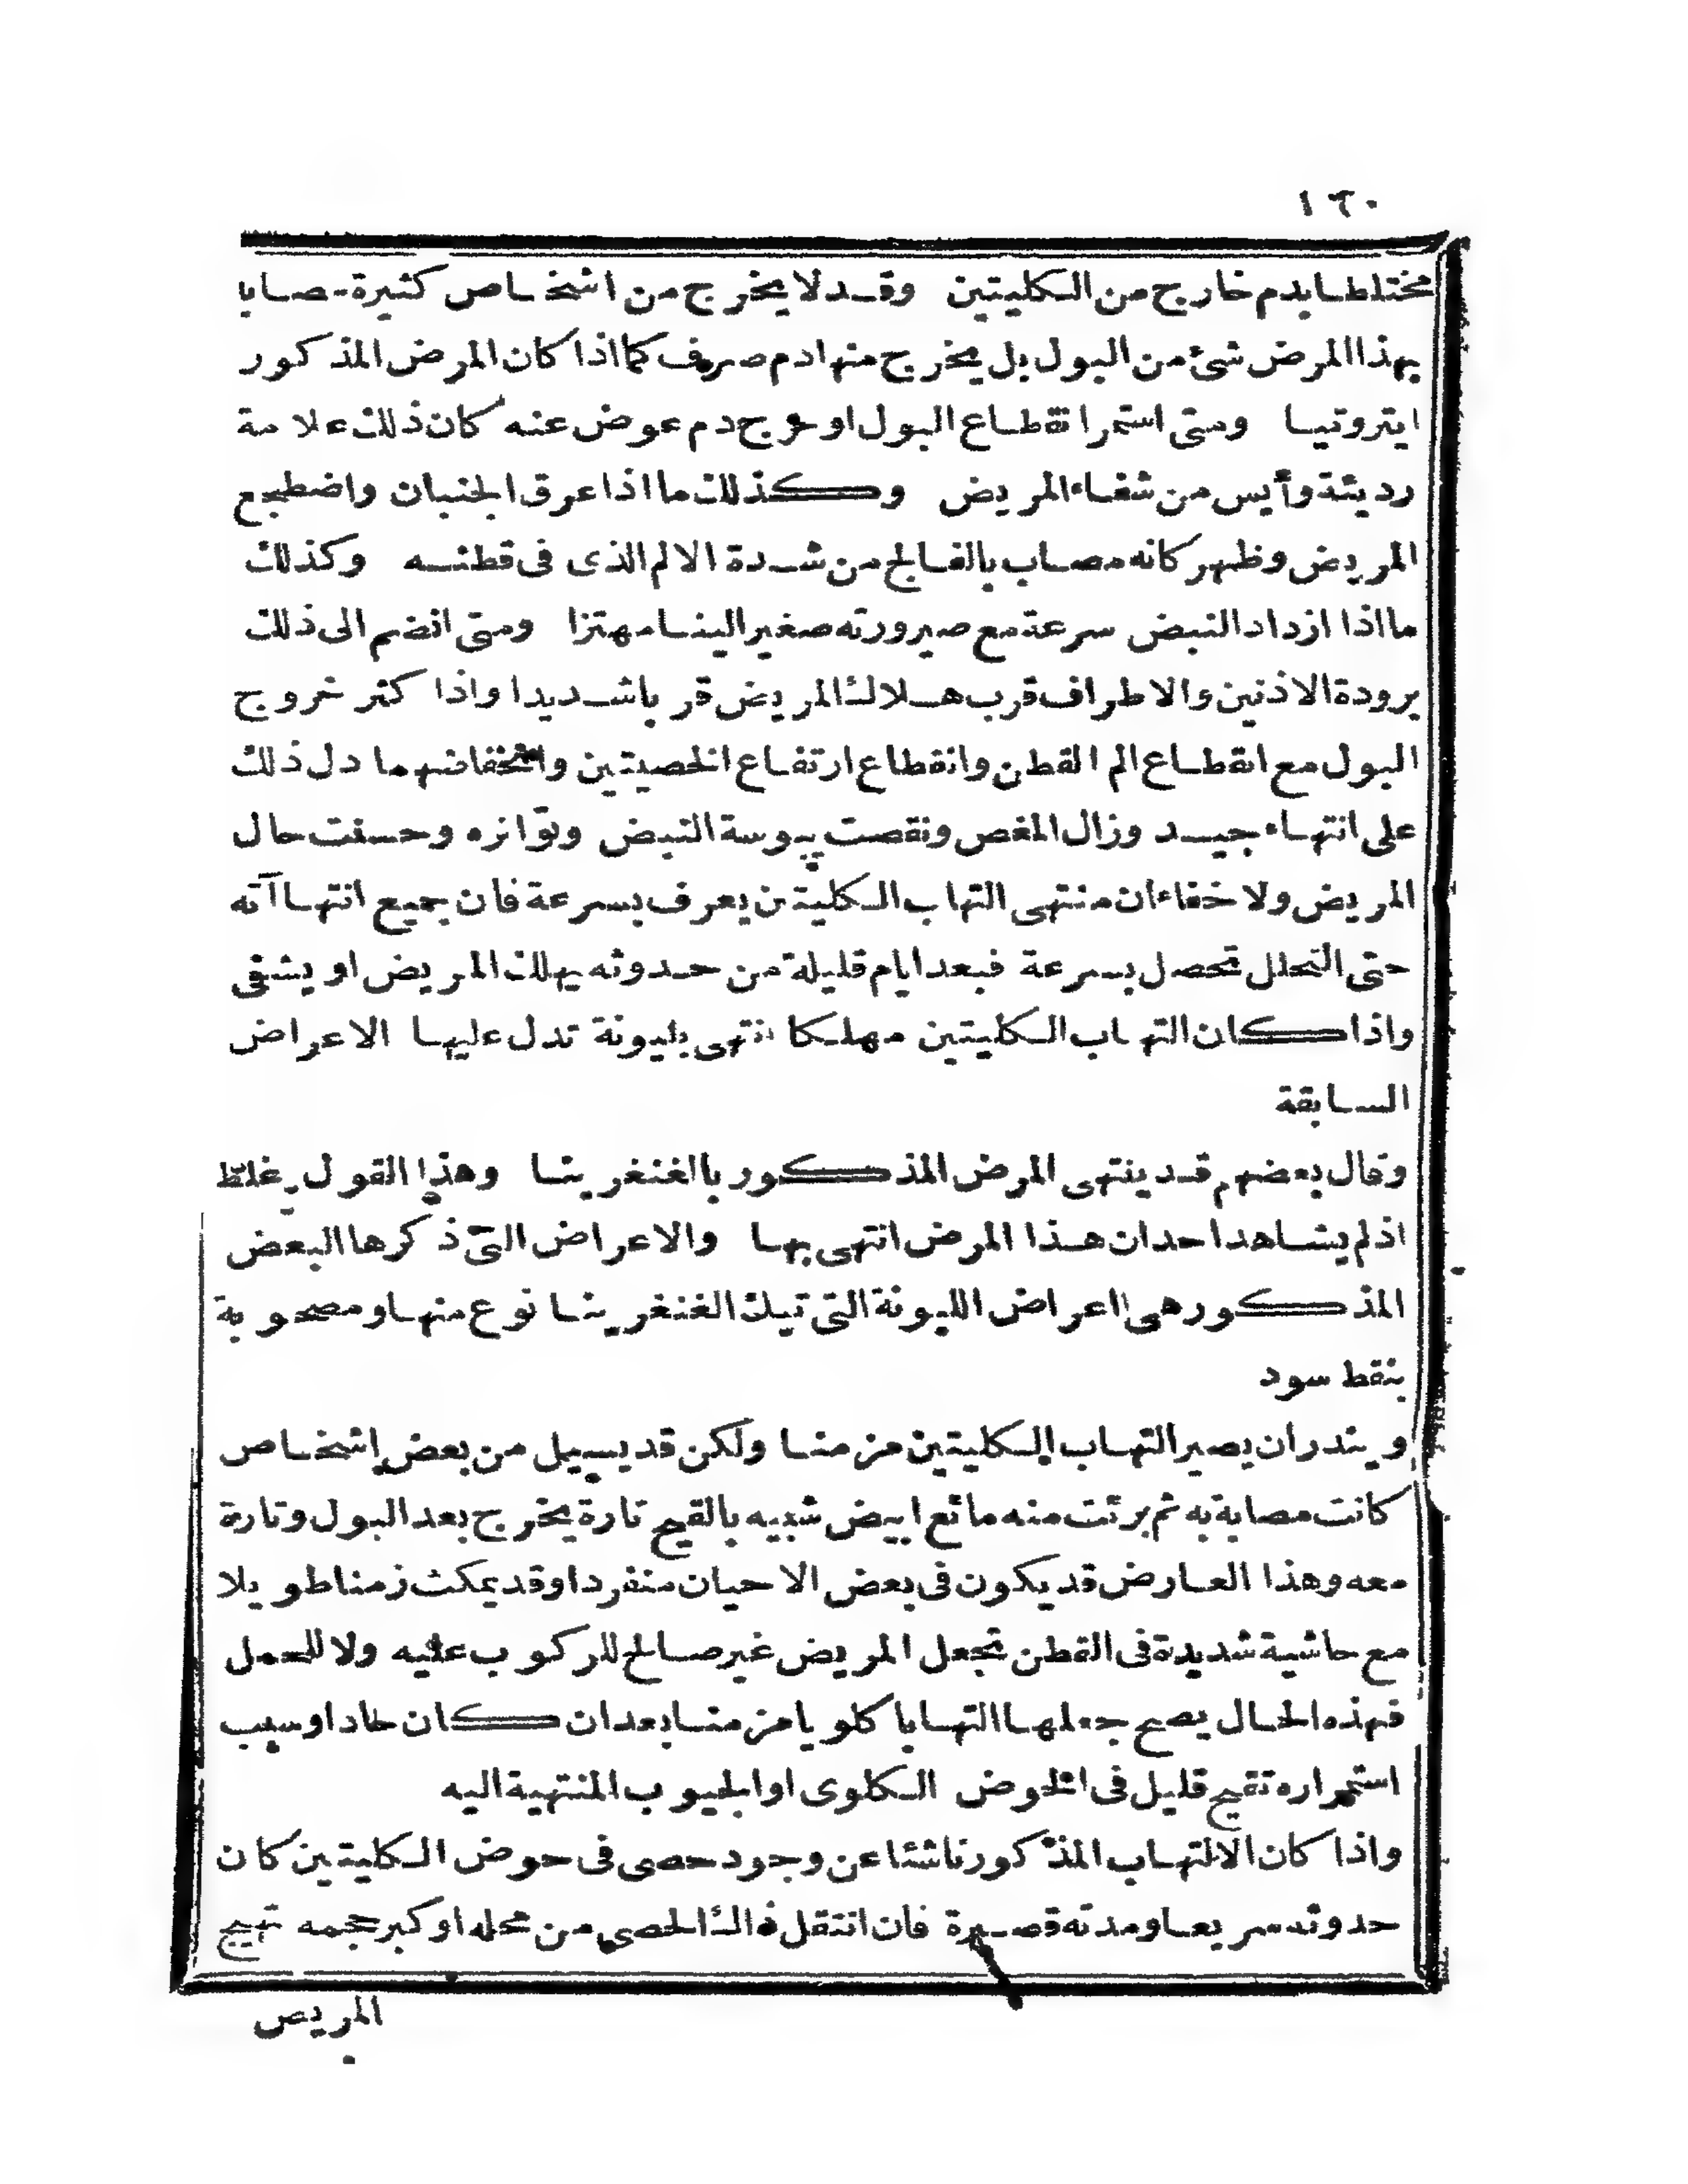 ١٦٠
مختلطا بدم خارج من الكليتين وقد لا يخرج من اشخاص كثيرة مصابا
بهذا المرض شئ من البول بل يخرج منها دم صرف كما اذا كان المرض المذكور
ايتروتيا ومتى استمر انقطاع البول او خرج دم عوض عنه كان ذلك علامة
رديئة وأيس من شفاء المريض وكذلك ما اذا عرق الجنبان واضطجع
المريض وظهر كانه مصاب بالفالج من شدة الالم الذى فى قطنه وكذلك
ما اذا ازداد النبض سرعة مع صيرورته صغيرا لينا مهتزا ومتى انضم الى ذلك
برودة الاذنين والاطراف قرب هلاك المريض قربا شديدا واذا كثر خروج
البول مع انقطاع الم القطن وانقطاع ارتفاع الخصيتين وانخفاضهما دل ذلك
على انتهاء جيد وزال المغص ونقصت يبوسة النبض وتواتره وحسنت حال
المريض ولا خفاء ان منتهى التهاب الكليتين يعرف بسرعة فان جميع انتهاآته
حتى التحلل تحصل بسرعة فبعد ايام قليلة من حدوثه يهلك المريض او يشفى
واذا كان التهاب الكليتين مهلكا انتهى بليونة تدل عليها الاعراض
السابقة
وقال بعضهم قد ينتهى المرض المذكور بالغنغرينا وهذا القول غلط
اذ لم يشاهد احد ان هذا المرض انتهى بها والاعراض التى ذكرها البعض
المذكور هى اعراض الليونة التى تيك الغنغرينا نوع منها ومصحوبة
بنقط سود
ويندر ان يصير التهاب الكليتين مزمنا ولكن قد يسيل من بعض اشخاص
كانت مصابة به ثم برئت منه مائع ابيض شبيه بالقيح تارة يخرج بعد البول وتارة
معه وهذا العارض قد يكون فى بعض الاحيان منفردا وقد يمكث زمنا طويلا
مع حاشية شديدة فى القطن تجعل المريض غير صالح للركوب عليه ولا للحمل
فهذه الحال يصح جعلها التهابا كلويا مزمنا بعد ان كان حادا وسبب
استمراره تقيح قليل فى الحوض الكلوى او الجيوب المنتهية اليه
واذا كان الالتهاب المذكور ناشئا عن وجود حصى فى حوض الكليتين كان
حدوثه سريعا ومدته قصيرة فان انتقل ذالك الحصى من محله او كبر حجمه تهيج
المريض